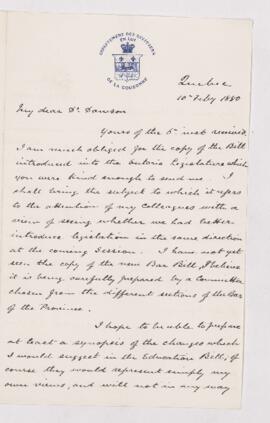 DEPARTEMENT DES OFFICIERS
EN LOI
DE LA COURONNE
Quebec
10th Feby 1880
My dear Dr Dawson
Yours of the 5th inst received.
I am much obliged for the copy of the Bill
introduced into the Ontario Legislature which
you were kind enough to send me. I
shall bring the subject to which it refers
to the attention of my colleagues with a
view of seeing whether we had better
introduce legislation in the same direction
at the coming Session. I have not yet
seen the copy of the new Bar Bill, I believe
it is being carefully prepared by a Committee
chosen from the different sections of the Bar
of the Province.
I hope to be able to prepare
at least a synopsis of the changes which
I would suggest in the Education Bill, of
course they would represent simply my
own views, and will not in any way